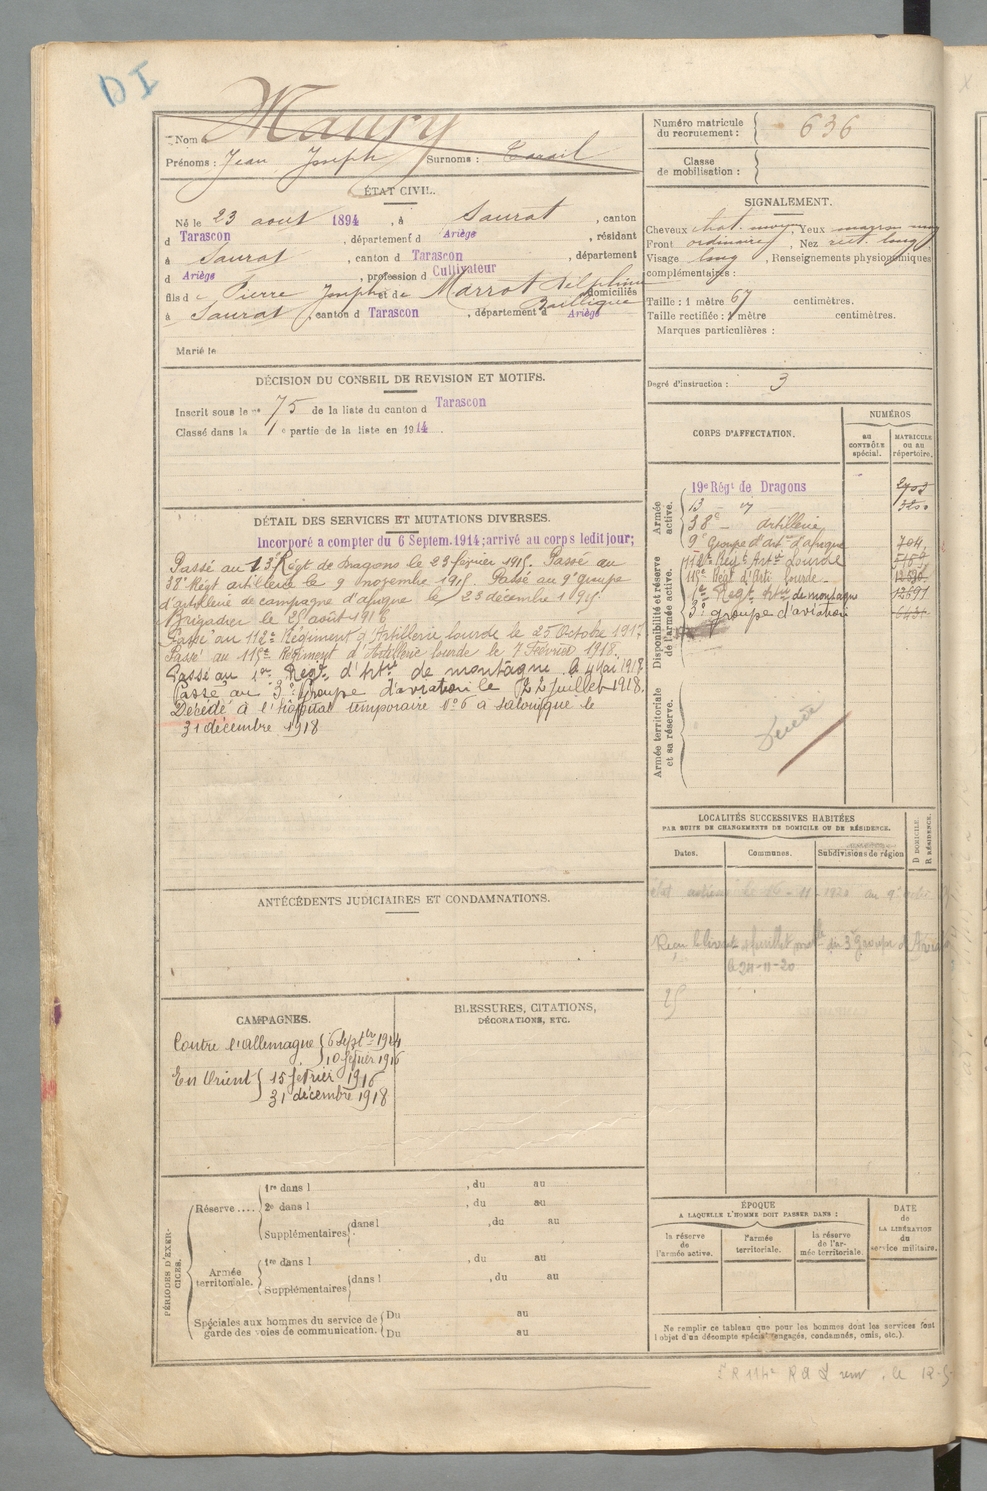 DI
Nom : Maury
Prénoms : Jean Joseph Surnoms :
ÉTAT CIVIL.
Né le 23 aout 1894 , à Saurat , canton
d Tarascon , département d Ariège , résidant
à Saurat , canton d Tarascon , département
d Ariège , profession d Cultivateur
fils d e Pierre Joseph et d e Marrot Delphine domiciliés
à Saurat , canton d Tarascon , département d Ariège
Marié le
DÉCISION DU CONSEIL DE REVISION ET MOTIFS.
Inscrit sous le n° 75 de la liste du canton d Tarascon
Classé dans la 1 e partie de la liste en 1914 .
DÉTAIL DES SERVICES ET MUTATIONS DIVERSES.
Incorporé a compter du 6 Septem. 1914; arrivé au corps ledit jour;
Passé au 13e Régt de dragons le 23 février 1915. Passé au
38e Régt artillerie le 9 novembre 1915. Passé au 9e groupe
d'artillerie de campagne d'afrique le 23 décembre 1915.
Brigadier le 25 août 1916
Passé au 112e Régiment d'Artillerie lourde le 25 Octobre 1917
Passé au 115e Régiment d'Artillerie lourde le 7 Février 1918.
Passé au 1er Régt d'Artie de montagne le 4 Mai 1918
Passé au 3e Groupe d'aviation le 22 Juillet 1918.
Décédé à l'hôpital temporaire n° 6 à Salonique le
31 décembre 1918
ANTÉCÉDENTS JUDICIAIRES ET CONDAMNATIONS.
CAMPAGNES.
Contre l'allemagne { 6 Septbre 1914
10 février 1916
En Orient } 15 février 1916
31 décembre 1918
BLESSURES, CITATIONS,
DÉCORATIONS, ETC.
PÉRIODES D'EXERCICES.
Réserve .... 1re dans l , du au
2e dans l , du au
Supplémentaires dans l , du au
Armée territoriale. 1re dans l , du au
Supplémentaires dans l , du au
Spéciales aux hommes du service de garde des voies de communication. Du au
Du au
Numéro matricule du recrutement : 636
Classe de mobilisation :
SIGNALEMENT.
Cheveux chat. moyen , Yeux marron moy
Front ordinaire , Nez rect. long
Visage long , Renseignements physionomiques
complémentaires :
Taille : 1 mètre 67 centimètres.
Taille rectifiée : 1 mètre centimètres.
Marques particulières :
Degré d'instruction : 3
CORPS D'AFFECTATION.
NUMÉROS
au CONTRÔLE spécial.
MATRICULE ou au répertoire.
Armée active.
19e Régt de Dragons
13 - "
38e - artillerie
9e Groupe d'Art. d'afrique 704
112e Régt Artie Lourde
115e Régt d'Arti lourde
1er Régt Artie de montagne
3e groupe d'aviation
Disponibilité et réserve de l'armée active.
Armée territoriale et sa réserve.
LOCALITÉS SUCCESSIVES HABITÉES
PAR SUITE DE CHANGEMENTS DE DOMICILE OU DE RÉSIDENCE.
Dates. Communes. Subdivisions de région
D DOMICILE. R RÉSIDENCE.
le 24-11-20
25
ÉPOQUE
A LAQUELLE L'HOMME DOIT PASSER DANS :
la réserve de l'armée active.
l'armée territoriale.
la réserve de l'armée territoriale.
DATE de LA LIBÉRATION du service militaire.
Ne remplir ce tableau que pour les hommes dont les services font
l'objet d'un décompte spécial (engagés, condamnés, omis, etc.).